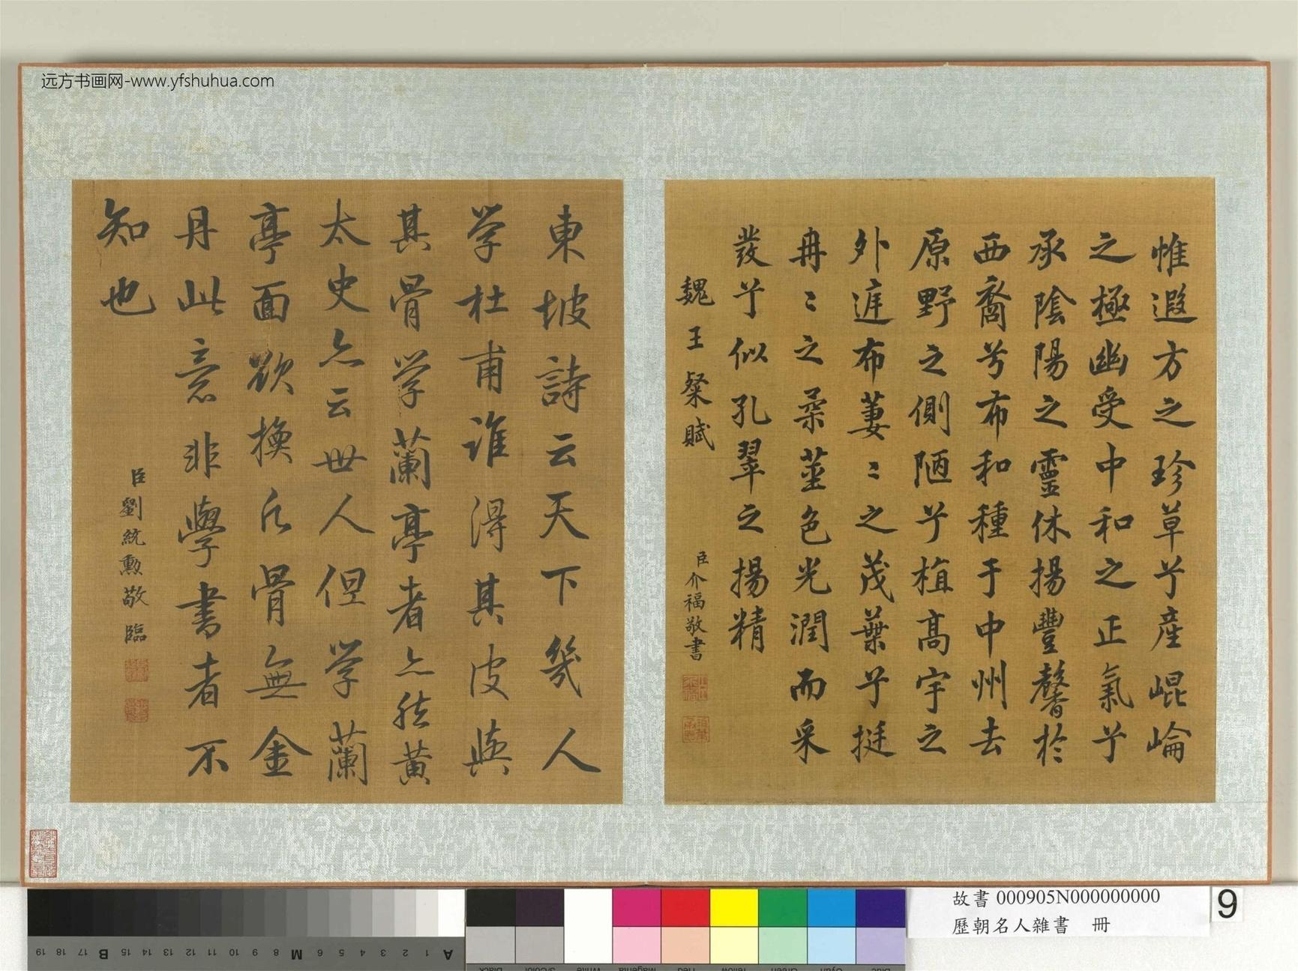 远方书画网-www.yfshuhua.com
惟遐方之珍草兮產崐崘
之極幽受中和之正氣兮
承陰陽之靈休揚豐馨於
西裔兮布和種于中州去
原野之側陋兮植高宇之
外庭布萋〻之茂葉兮挺
冉〻之柔莖色光潤而采
發兮似孔翠之揚精
魏王粲賦
臣介福敬書
東坡詩云天下幾人
学杜甫谁得其皮與
其骨学蘭亭者亦然黄
太史亦云世人但学蘭
亭面欲換凡骨無金
丹此意非學書者不
知也
臣劉統勲敬臨
故書 000905N000000000
歷朝名人雜書 冊
9